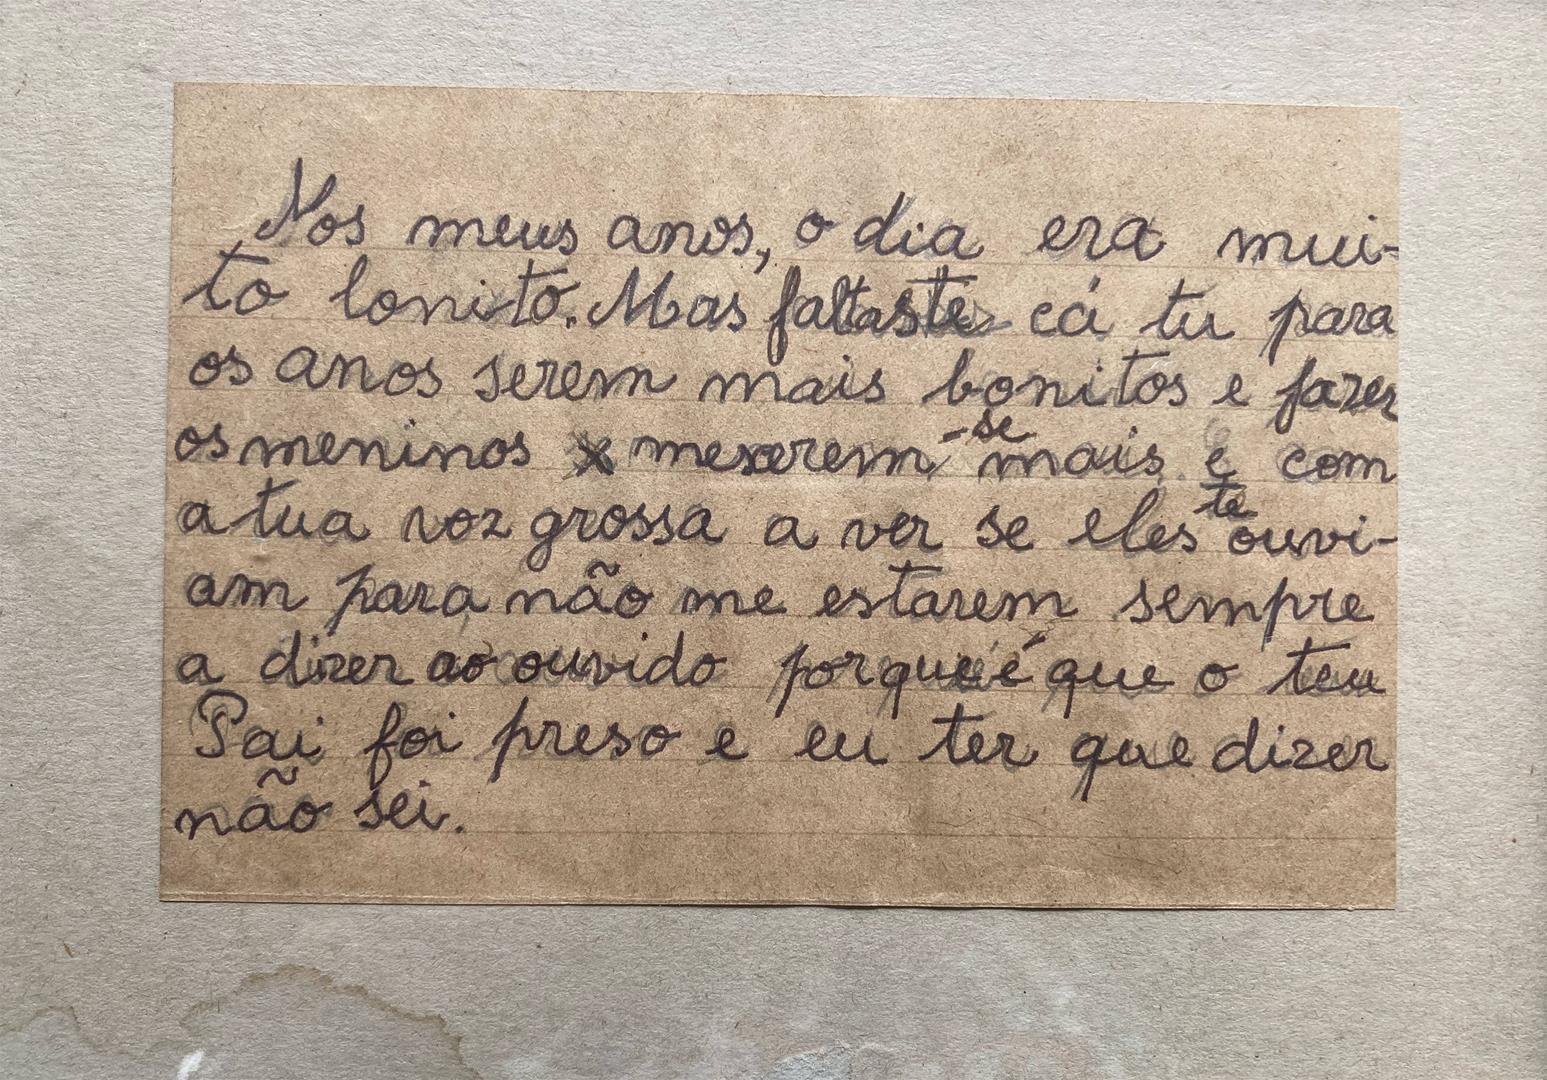 Nos meus anos, o dia era mui-
to bonito. Mas faltaste cá tu para
os anos serem mais bonitos e fazer
os meninos mexerem-se mais e com
a tua voz grossa a ver se eles te ouvi-
am para não me estarem sempre
a dizer ao ouvido porque é que o teu
Pai foi preso e eu ter que dizer
não sei.